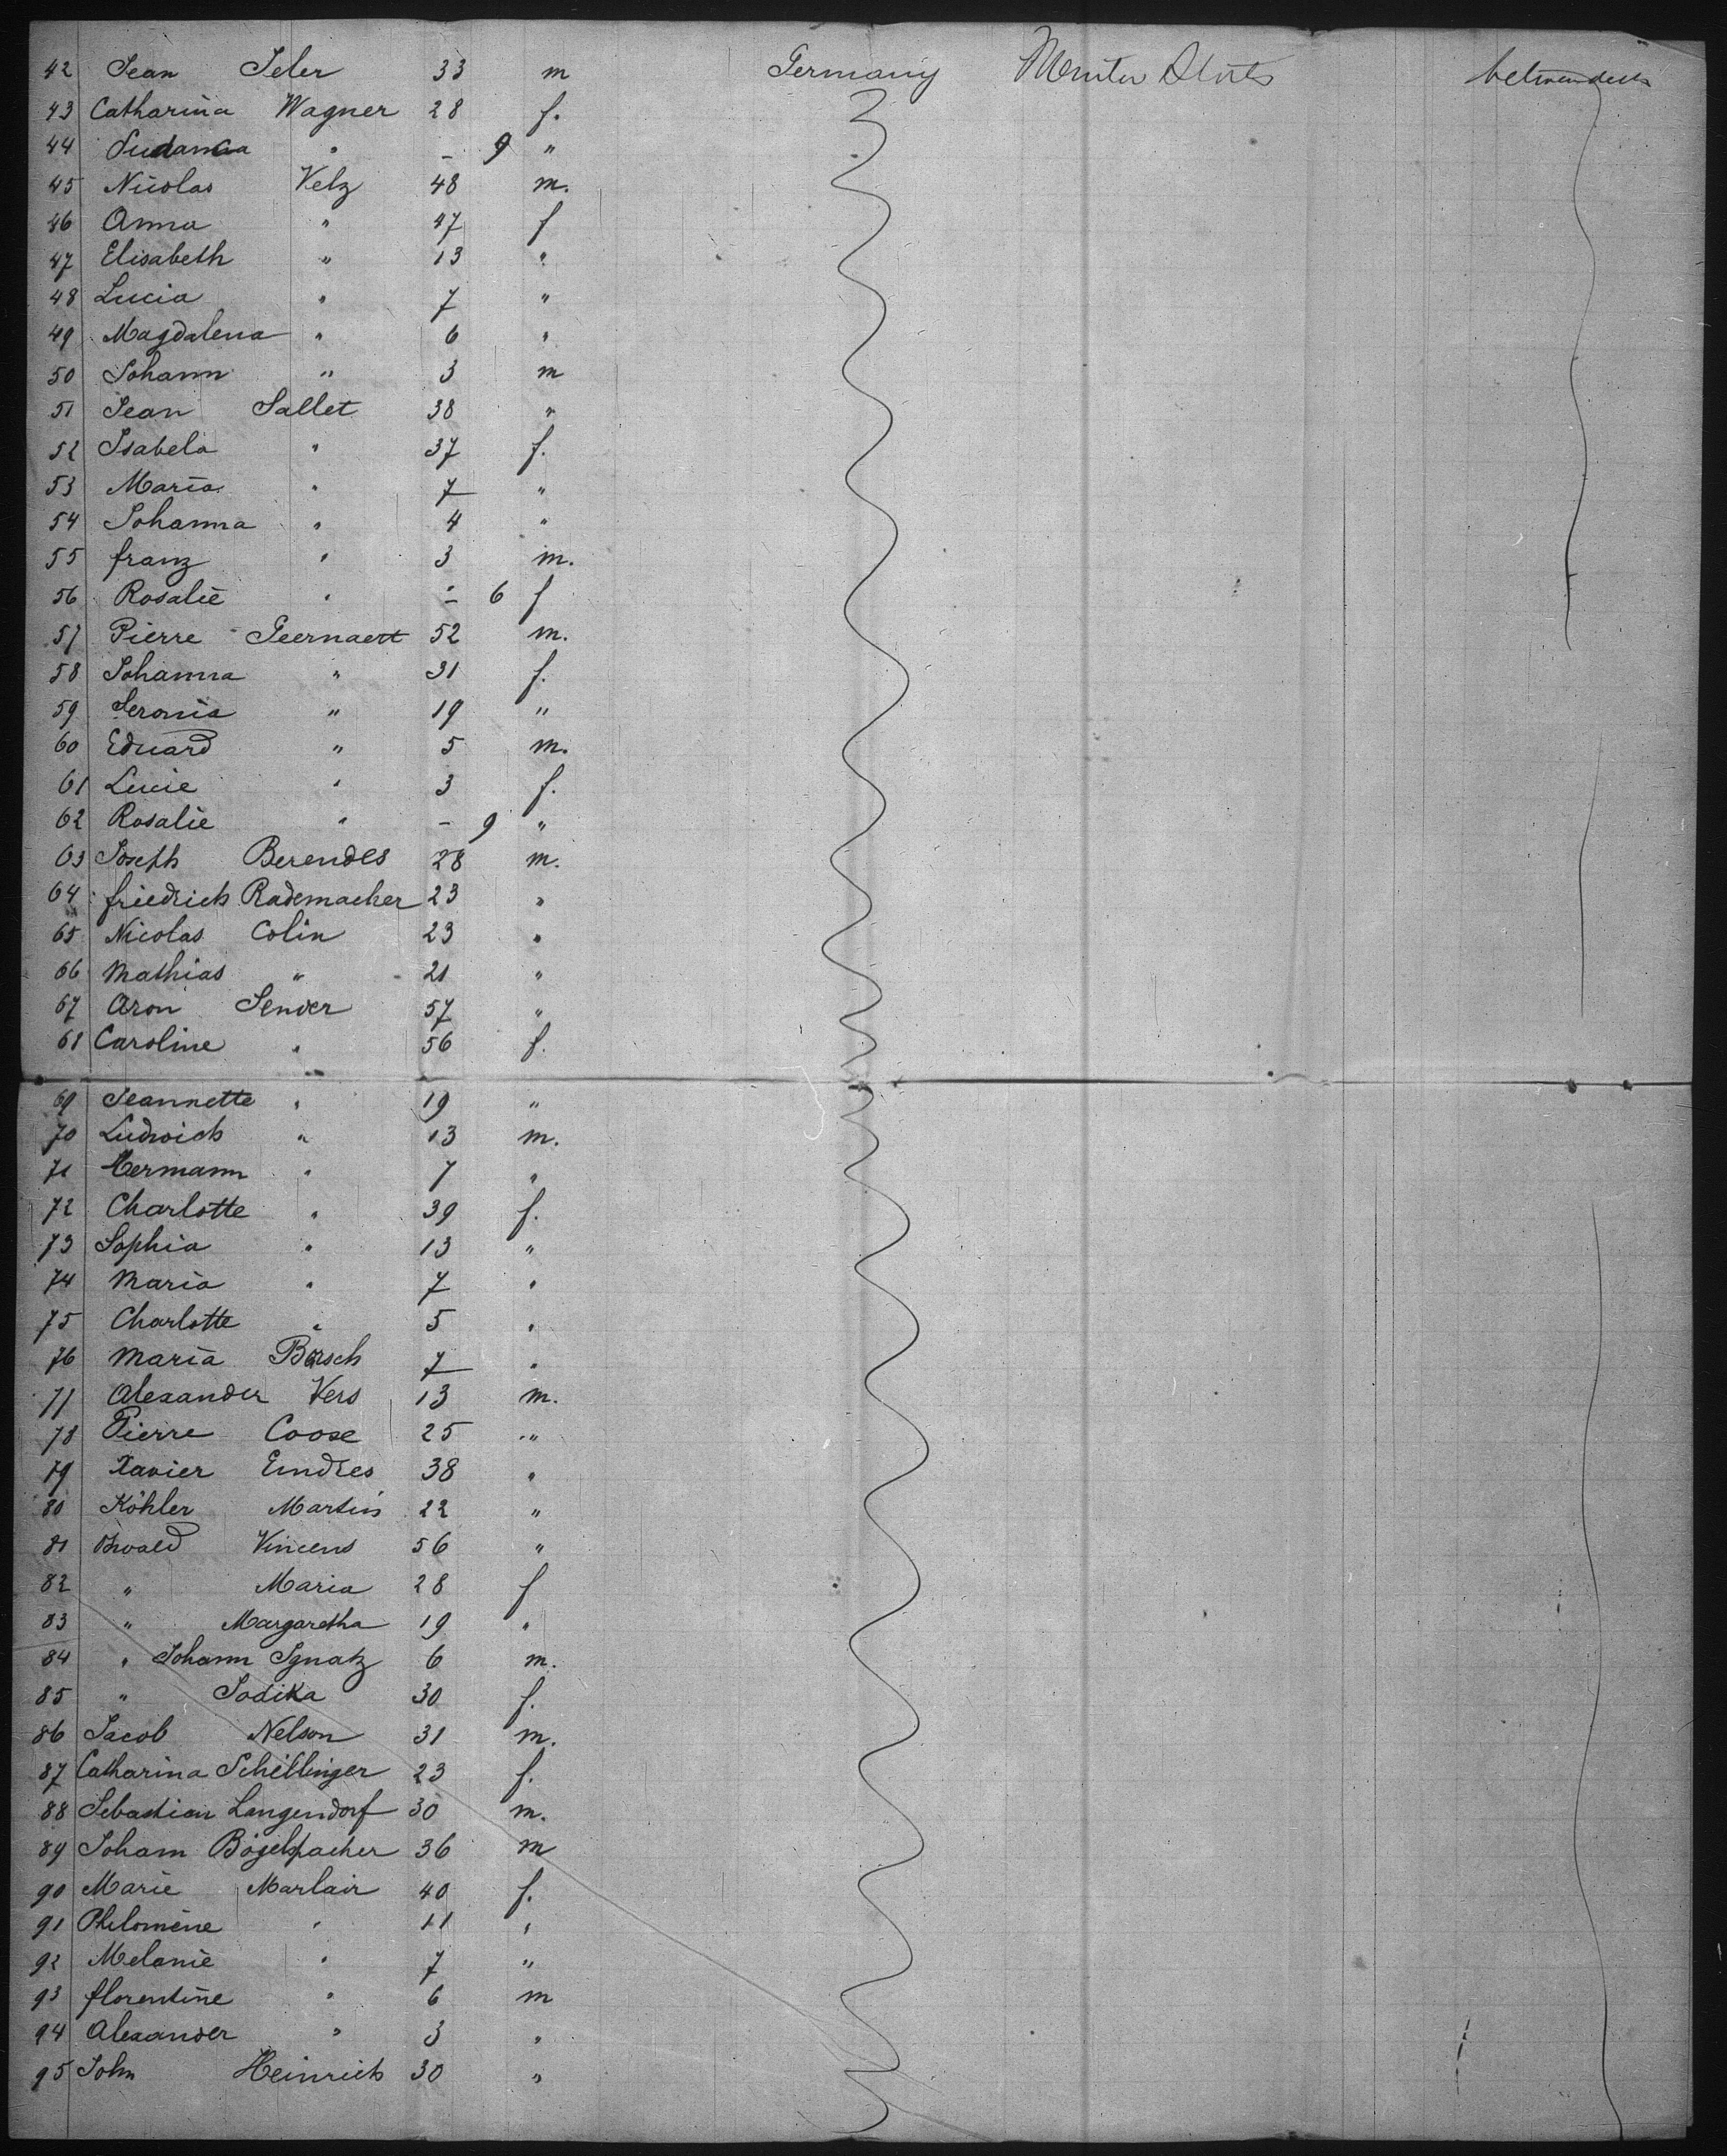 42 Jean Seler 33 m Germany
43 Catharina Wagner 28 f.
44 " - 9 "
45 Nicolas Velz 48 m.
46 Anna " 47 f
47 Elisabeth " 13 "
48 Lucia " 7 "
49 Magdalena " 6 "
50 Johann " 3 m
51 Jean Sallet 38 "
52 Isabela " 37 f.
53 Maria " 7 "
54 Johanna " 4 "
55 franz " 3 m.
56 Rosalie " - 6 f
57 Pierre Geernaert 52 m.
58 Johanna " 31 f.
59 " 19 "
60 Eduard " 5 m.
61 Lucie " 3 f.
62 Rosalie " - 9 "
63 Joseph Berendes 28 m.
64 friedrich Rademacher 23 "
65 Nicolas Colin 23 "
66 Mathias " 21 "
67 Aron Sender 57 "
68 Caroline " 56 f.
69 Jeannette " 19 "
70 Ludwich " 13 m.
71 Hermann " 7 "
72 Charlotte " 39 f.
73 Sophia " 13 "
74 Maria " 7 "
75 Charlotte " 5 "
76 Maria 7 "
77 Alexander Vers 13 m.
78 Pierre Coose 25 "
79 Xavier Eindres 38 "
80 Köhler Martin 22 "
81 Vincens 56 "
82 " Maria 28 f
83 " Margaretha 19 "
84 " Johann Ignatz 6 m.
85 " Sadika 30 f.
86 Jacob Nelson 31 m.
87 Catharina Schillinger 23 f.
88 Sebastian Langendorf 30 m.
89 Johann Bögelspacher 36 m
90 Marie Marlair 40 f.
91 Philomène " 11 "
92 Melanie " 7 "
93 florentine " 6 m
94 Alexander " 3 "
95 John Heinrich 30 "